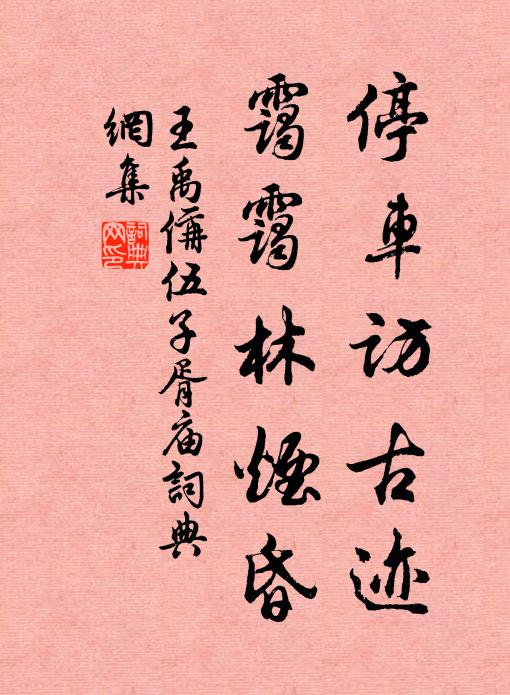 停車訪古迹
靄靄林煙昏
王禹偁伍子胥庙詞典
網集
詞典
网印